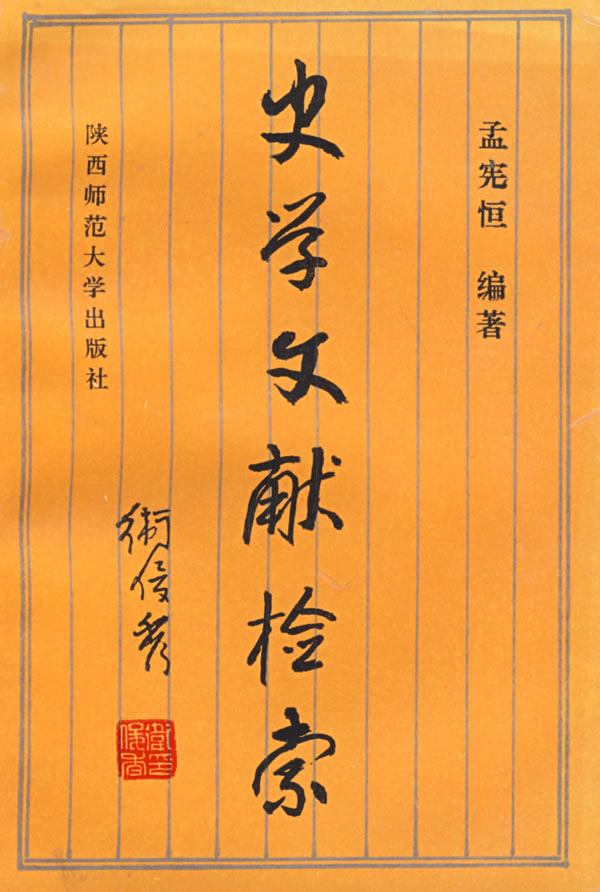 孟宪恒 编著
史学文献检索
衛俊秀
陕西师范大学出版社